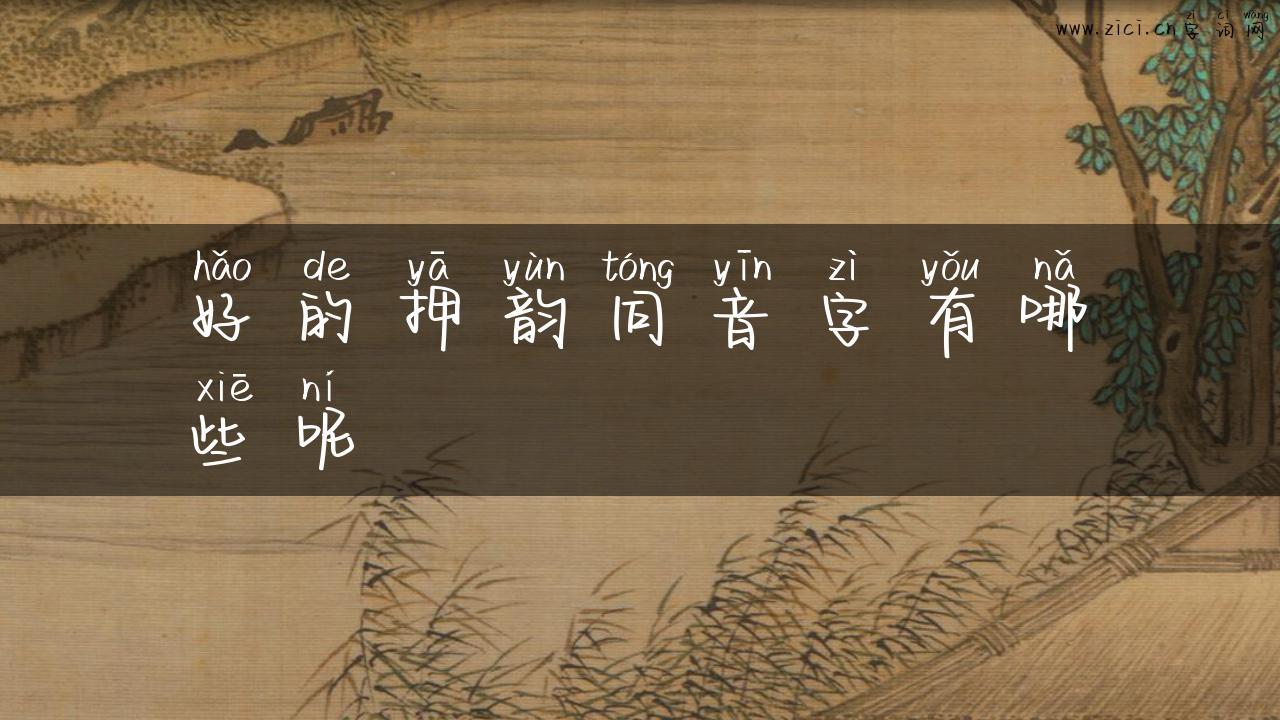 zì cí wǎng
www.zici.cn字词网
hǎo de yā yùn tóng yīn zì yǒu nǎ
好的押韵同音字有哪
xiē ní
些呢